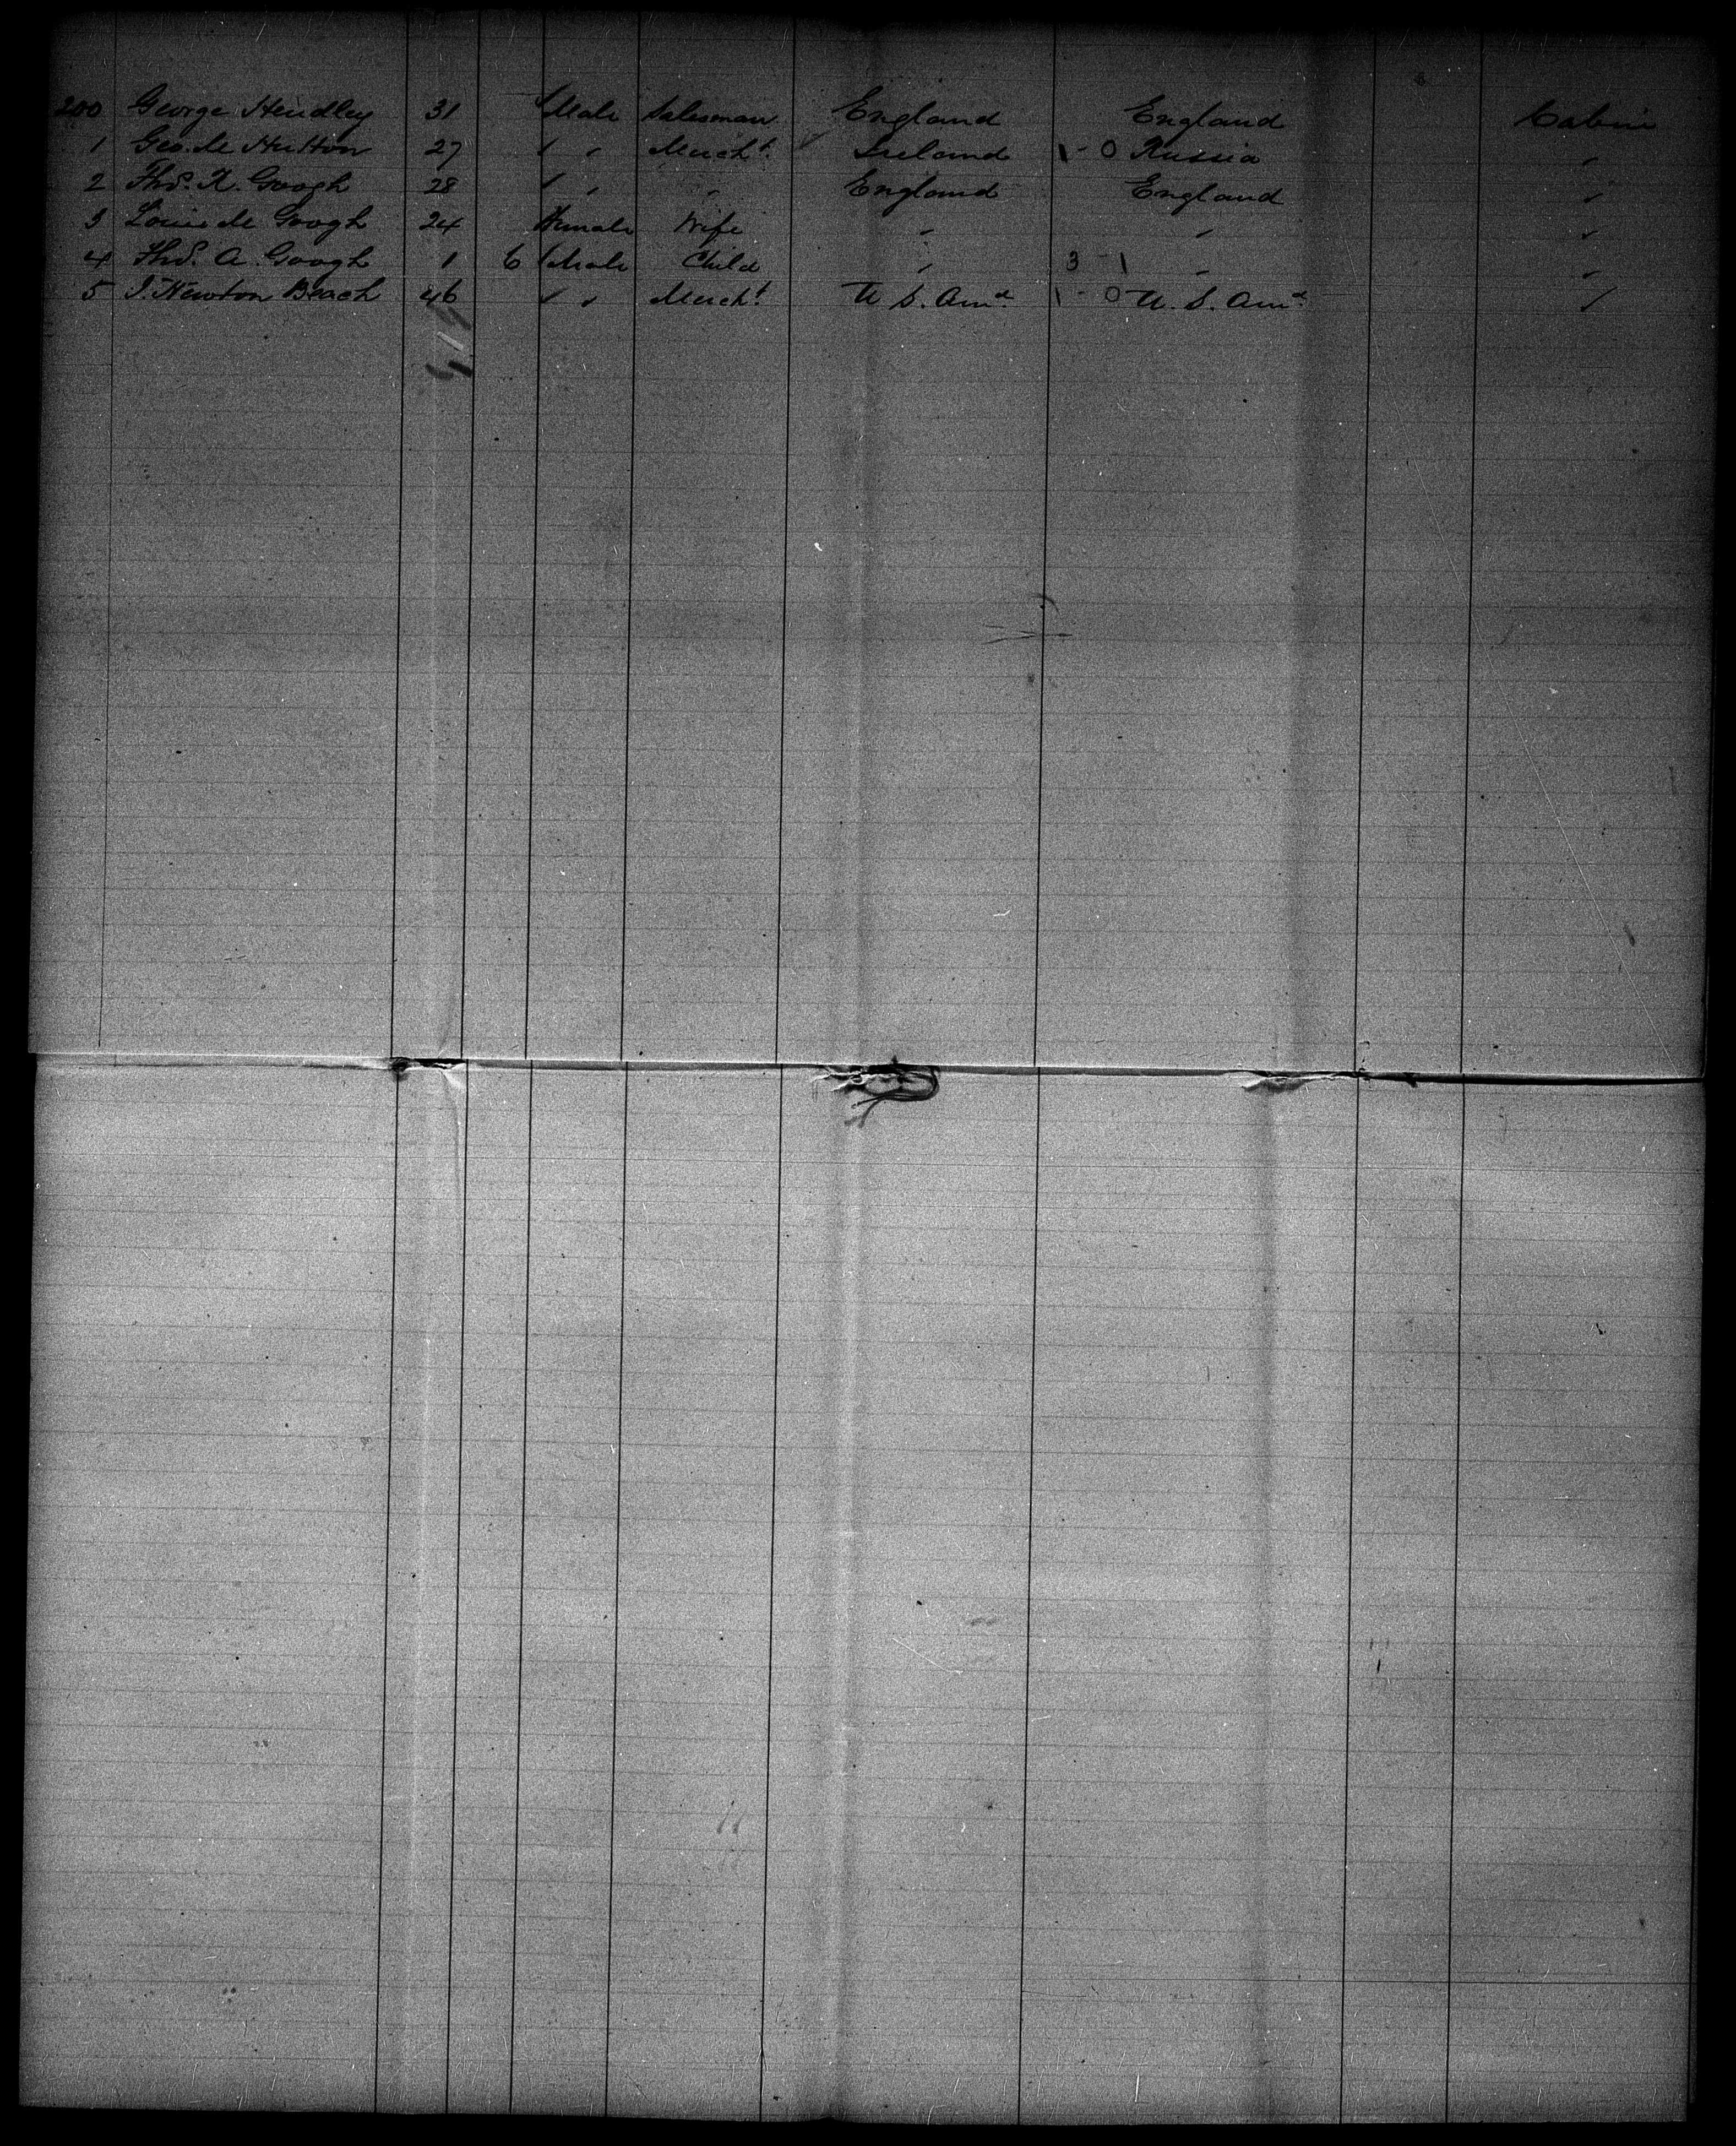 200 George Hendley 31 Male Salesman England England Cabin
1 Geo. M Hutton 27 " Mercht. Ireland 1-0 Russia "
2 Thos. R. Googh 28 " " England England "
3 Louise M Googh 24 Female Wife " " "
4 Thos. A. Googh 1 6 Male Child " 3-1 " "
5 J. Newton Beach 46 " Mercht. U. S. Ama. 1-0 U. S. Ama. "